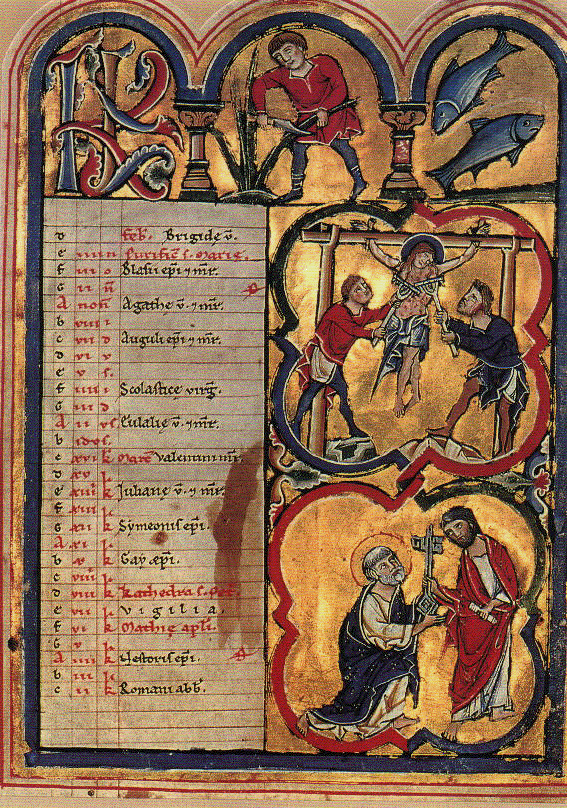 KL
d feb. Brigide v̄.
e iiii n Purific̄ s. Marie.
f iii o Blasii ep̄i ⁊ mr̄.
G ii n̄
A noń Agathe v̄. ⁊ mr̄.
b viii i
c vii d Auguli ep̄i ⁊ mr̄.
d vi v
e v s.
f iiii i Scolastice virḡ.
G iii d
A ii vs Eulalie v̄. ⁊ mr̄.
b idvs.
c xvi k Valentini mr̄.
d xv l.
e xiiii k Juliane v̄. ⁊ mr̄.
f xiii l.
G xii k Symeonis ep̄i.
A xi l.
b x k Gaÿ ep̄i.
c viiii l.
d viii k Kathedra s. Pet̄.
e vii l. vigilia.
f vi k Mathie apl̄i.
G v l.
A iiii k Nestoris ep̄i.
b iii l.
c ii k Romani abb̄.